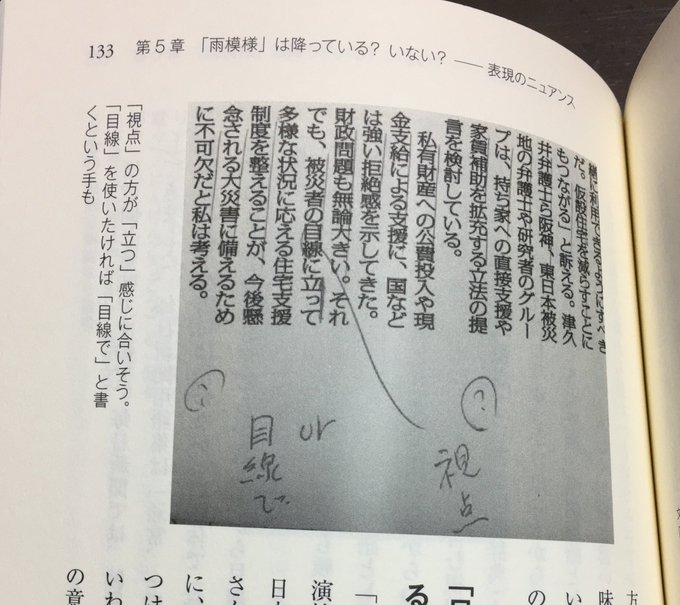 133 第5章 「雨模様」は降っている？ いない？ ── 表現のニュアンス
様に利用できるようにすべき
だ。仮設住宅を減らすことに
もつながる」と訴える。津久
井弁護士ら阪神、東日本被災
地の弁護士や研究者のグルー
プは、持ち家への直接支援や
家賃補助を拡充する立法の提
言を検討している。
私有財産への公費投入や現
金支給による支援に、国など
は強い拒絶感を示してきた。
財政問題も無論大きい。それ
でも、被災者の目線に立って
多様な状況に応える住宅支援
制度を整えることが、今後懸
念される大災害に備えるため
に不可欠だと私は考える。
?
視点
or
目線で
?
「視点」の方が「立つ」感じに合いそう。
「目線」を使いたければ「目線で」と書
くという手も
味
い
の
る
「
演
日
さん
に、
つけ
いわ
の意